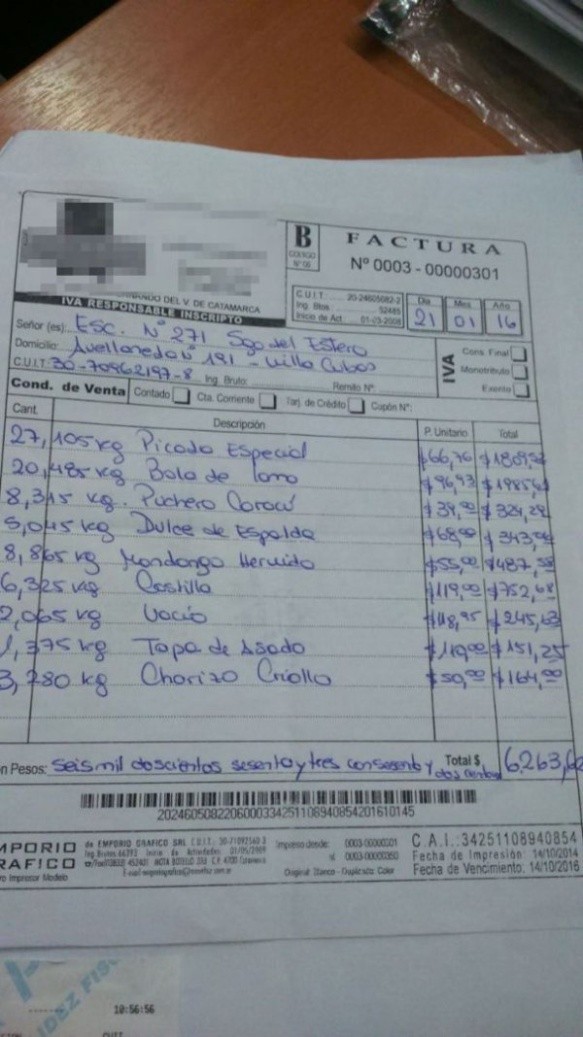 B
CODIGO
Nº 06
FACTURA
Nº 0003 - 00000301
NANDO DEL V. DE CATAMARCA
IVA RESPONSABLE INSCRIPTO
C.U.I.T.:
Ing. Btos
Inicio de Act.
Dia Mes Año
21 01 16
Señor (es): Esc. Nº 271 Sgo del Estero
Domicilio: Avellaneda Nº 191 - Villa Cubas
C.U.I.T: 30-70962197-8 Ing. Bruto: Remito Nº:
IVA
Cons. Final
Monotributo
Exento
Cond. de Venta Contado Cta. Corriente Tarj. de Crédito Cupón Nº:
Cant. Descripción P. Unitario Total
27,105 kg Picada Especial $66,76 $1809,
20,485 kg Bola de lomo $96,93 $1985,
8,315 kg. Puchero Caracú $39,00 $324,29
5,045 kg Dulce de Espalda $68,00 $343,
8,865 kg Mondongo Hervido $55,00 $487,
6,325 kg Costilla $119,00 $752,68
2,065 kg Vacío $118,95 $245,63
1,375 kg Tapa de Asado $110,00 $151,25
3,280 kg Chorizo Criollo $50,00 $164,00
n Pesos: seis mil doscientos sesenta y tres con sesenta y dos centavos Total $ 6263,62
2024605082206000334251108940854201610145
MPORIO
RAFICO
ro Impresor Modelo
de EMPORIO GRAFICO SRL C.U.I.T.: 30-71092160-3
Impreso desde: 0003-00000301
al 0003-00000350
Original: Blanco - Duplicado: Color
C.A.I.: 34251108940854
Fecha de Impresión: 14/10/2014
Fecha de Vencimiento: 14/10/2016
DEZ FIS
10:56:56
CUIT